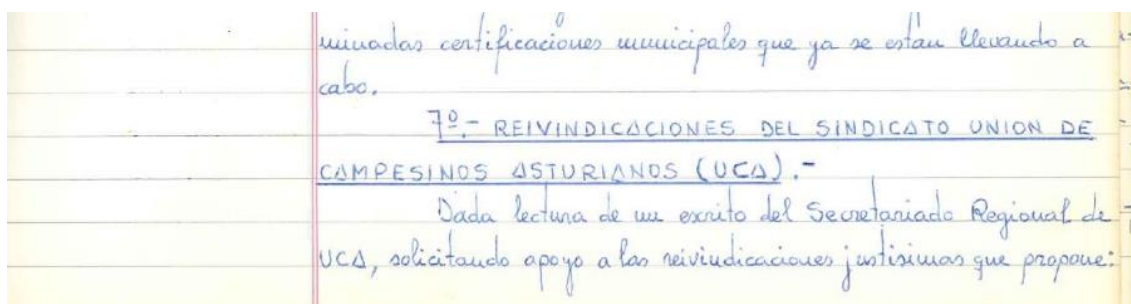 minadas certificaciones municipales que ya se estan llevando a
cabo.
7º.- REIVINDICACIONES DEL SINDICATO UNION DE
CAMPESINOS ASTURIANOS (UCA).-
Dada lectura de un escrito del Secretariado Regional de
UCA, solicitando apoyo a las reivindicaciones justisimas que propone: